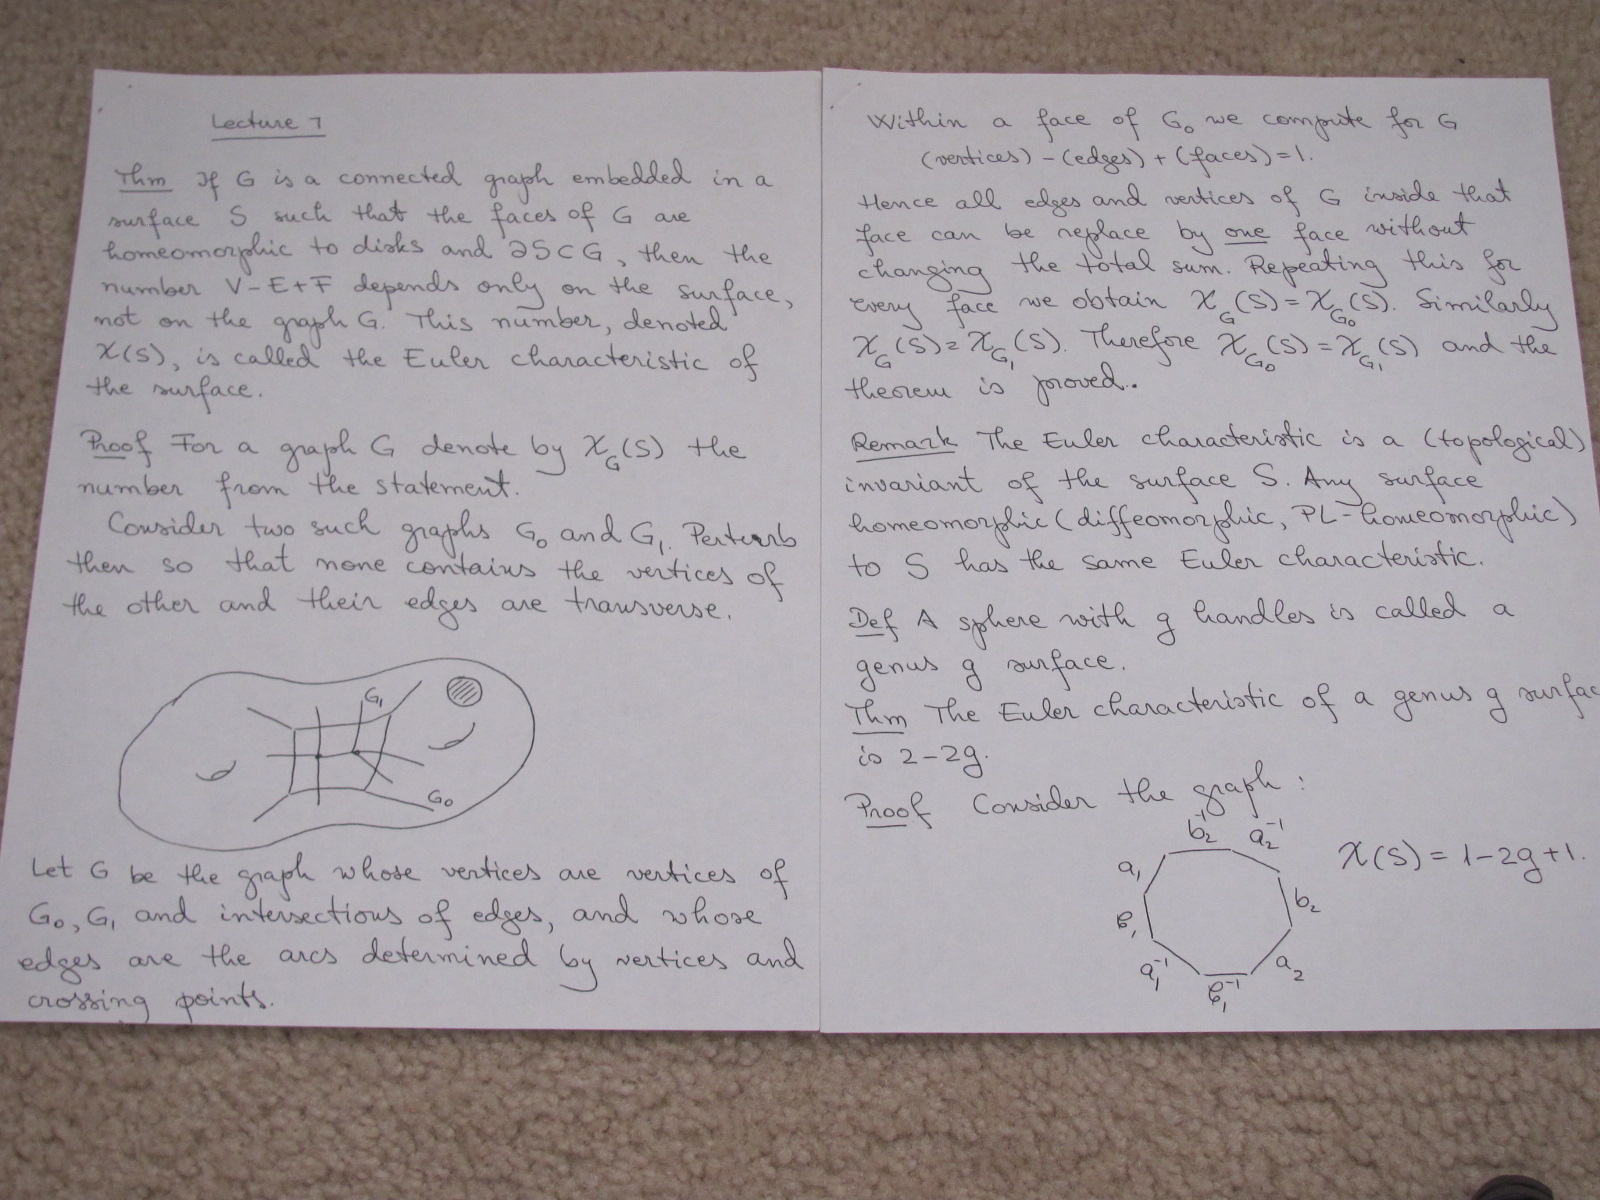 Lecture 7
Thm If G is a connected graph embedded in a
surface S such that the faces of G are
homeomorphic to disks and ∂S⊂G, then the
number V-E+F depends only on the surface,
not on the graph G. This number, denoted
χ(S), is called the Euler characteristic of
the surface.
Proof For a graph G denote by χ_G(S) the
number from the statement.
Consider two such graphs G₀ and G₁. Perturb
then so that none contains the vertices of
the other and their edges are transverse.
G₁
G₀
Let G be the graph whose vertices are vertices of
G₀, G₁ and intersections of edges, and whose
edges are the arcs determined by vertices and
crossing points.
Within a face of G₀ we compute for G
(vertices) - (edges) + (faces) = 1.
Hence all edges and vertices of G inside that
face can be replace by one face without
changing the total sum. Repeating this for
every face we obtain χ_G(S) = χ_G₀(S). Similarly
χ_G(S) = χ_G₁(S). Therefore χ_G₀(S) = χ_G₁(S) and the
theorem is proved.
Remark The Euler characteristic is a (topological)
invariant of the surface S. Any surface
homeomorphic (diffeomorphic, PL-homeomorphic)
to S has the same Euler characteristic.
Def A sphere with g handles is called a
genus g surface.
Thm The Euler characteristic of a genus g surfac
is 2-2g.
Proof Consider the graph:
b₂⁻¹ a₂⁻¹
a₁
χ(S) = 1-2g+1.
b₂
b₁
a₁⁻¹
a₂
b₁⁻¹